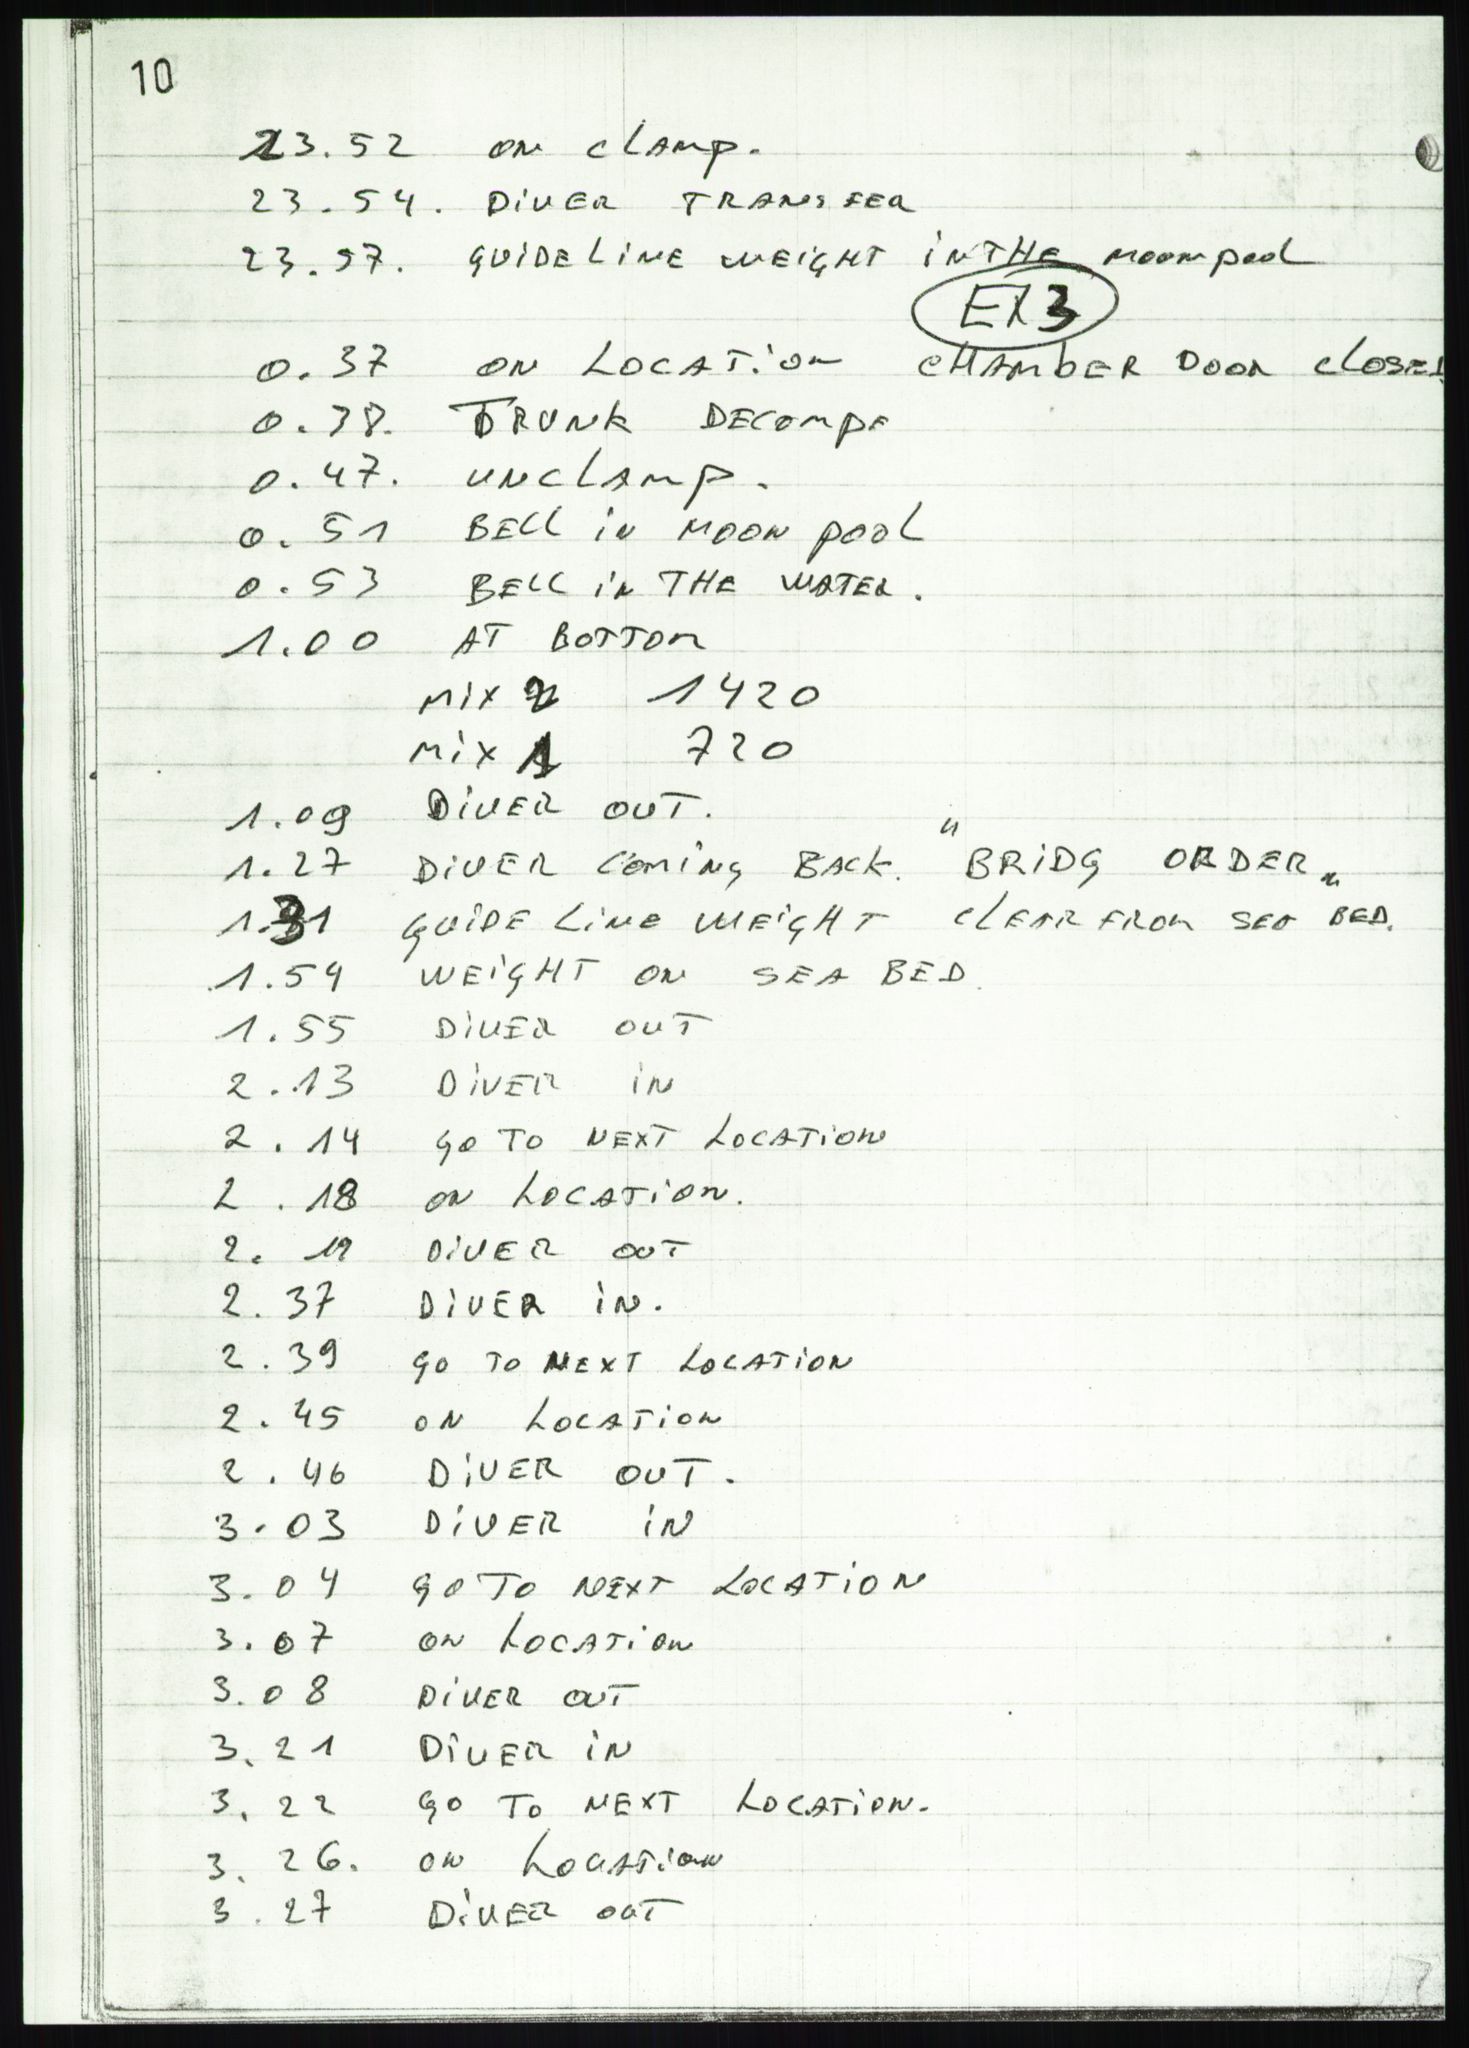 10
23.52 ON CLAMP.
23.54. DIVER TRANSFER
23.57. GUIDE LINE WEIGHT IN THE MOONPOOL
EX3
0.37 ON LOCATION CHAMBER DOOR CLOSED
0.38. TRUNK DECOMP
0.47. UNCLAMP.
0.51 BELL IN MOON POOL
0.53 BELL IN THE WATER.
1.00 AT BOTTOM
MIX 2 1420
MIX 1 720
1.09 DIVER OUT.
1.27 DIVER COMING BACK. "BRIDG ORDER"
1.31 GUIDE LINE WEIGHT CLEAR FROM SEA BED.
1.54 WEIGHT ON SEA BED.
1.55 DIVER OUT
2.13 DIVER IN
2.14 GO TO NEXT LOCATION
2.18 ON LOCATION.
2.19 DIVER OUT
2.37 DIVER IN.
2.39 GO TO NEXT LOCATION
2.45 ON LOCATION
2.46 DIVER OUT.
3.03 DIVER IN
3.04 GO TO NEXT LOCATION
3.07 ON LOCATION
3.08 DIVER OUT
3.21 DIVER IN
3.22 GO TO NEXT LOCATION.
3.26. ON LOCATION
3.27 DIVER OUT